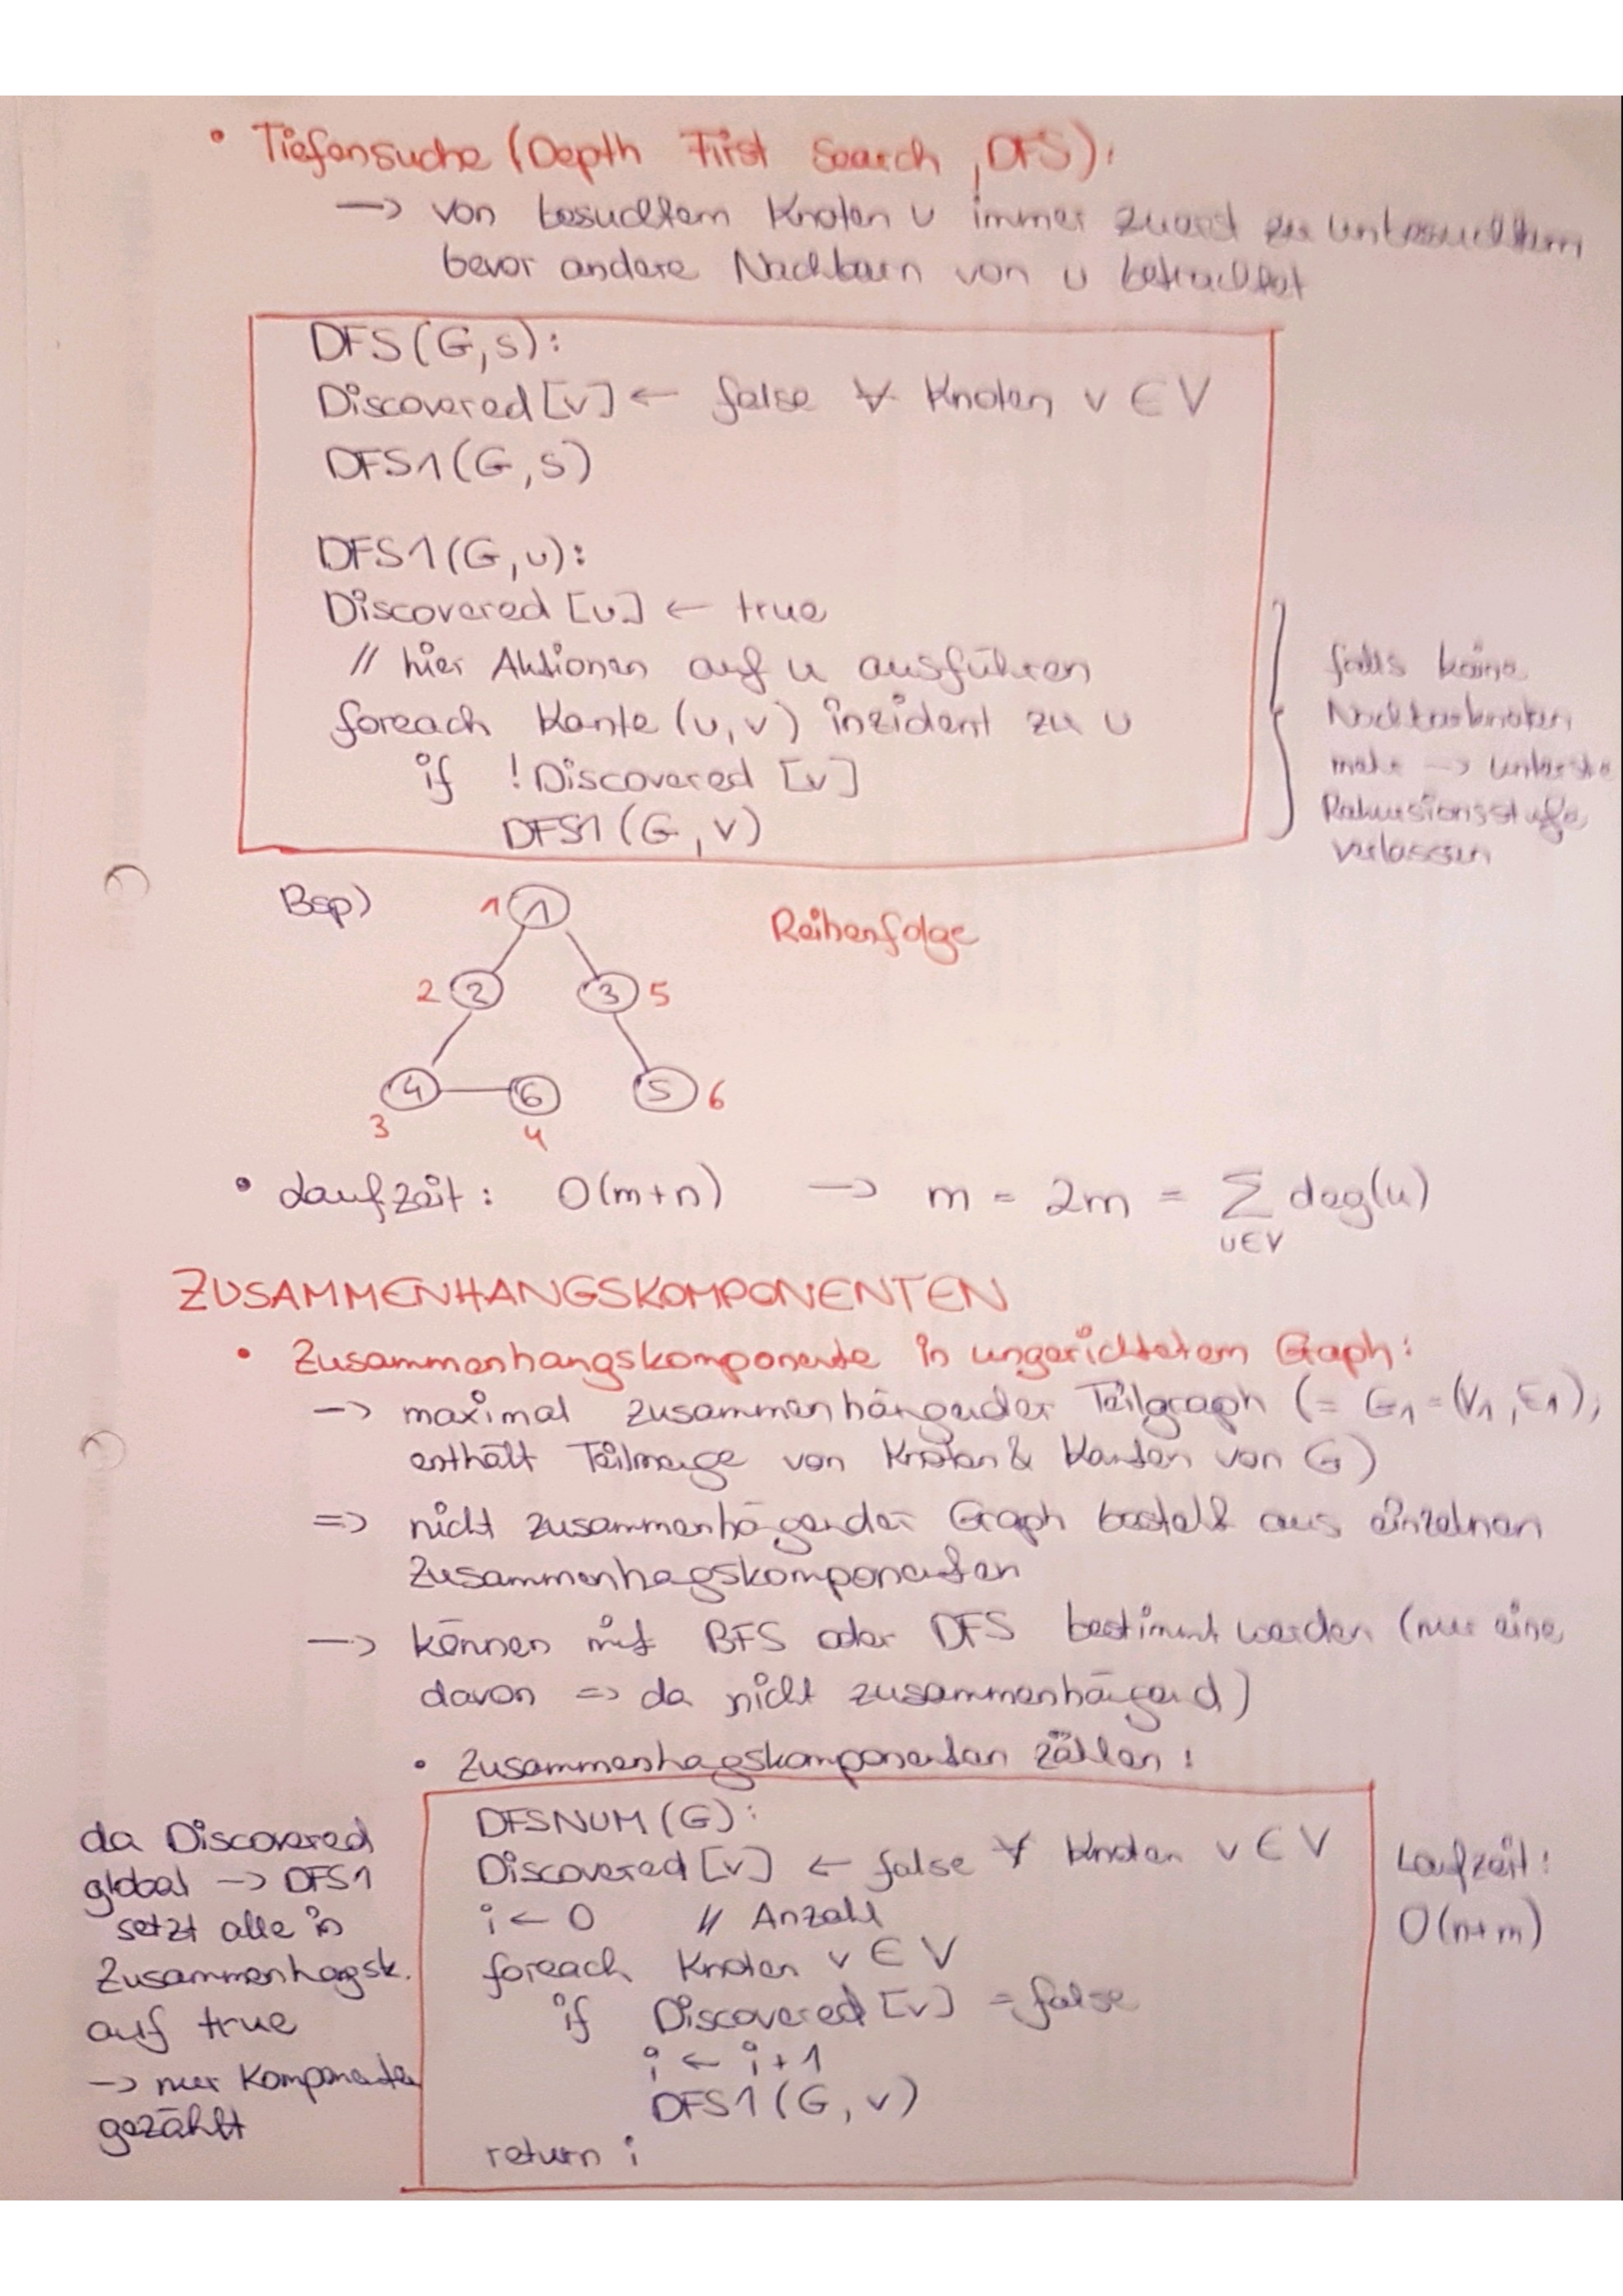 • Tiefensuche (Depth First Search, DFS):
—> von besuchtem Knoten u immer zuerst zu unbesuchtem
bevor andere Nachbarn von u betrachtet
DFS(G,s):
Discovered[v] ← false ∀ Knoten v ∈ V
DFS1(G,s)
DFS1(G,u):
Discovered[u] ← true
// hier Aktionen auf u ausführen
foreach Kante (u,v) inzident zu u
if !Discovered [v]
DFS1(G,v)
falls keine
Nachbarknoten
mehr —> unterste
Rekursionsstufe
verlassen
Bsp)
Reihenfolge
1 1
2 2 3 5
4 6 5 6
3 4
• Laufzeit: O(m+n) —> m = 2m = ∑ deg(u)
u∈V
ZUSAMMENHANGSKOMPONENTEN
• Zusammenhangskomponente in ungerichtetem Graph:
—> maximal zusammenhängender Teilgraph (= G1 = (V1, E1),
enthält Teilmenge von Knoten & Kanten von G)
=> nicht zusammenhägender Graph besteht aus einzelnen
Zusammenhagskomponenten
—> können mit BFS oder DFS bestimmt werden (nur eine
davon => da nicht zusammenhängend)
• Zusammenhagskomponenten zählen:
DFSNUM(G):
Discovered[v] ← false ∀ Knoten v ∈ V
i ← 0 // Anzahl
foreach Knoten v ∈ V
if Discovered[v] = false
i ← i+1
DFS1(G,v)
return i
da Discovered
global —> DFS1
setzt alle in
Zusammenhagsk.
auf true
—> nur Komponenten
gezählt
Laufzeit:
O(n+m)